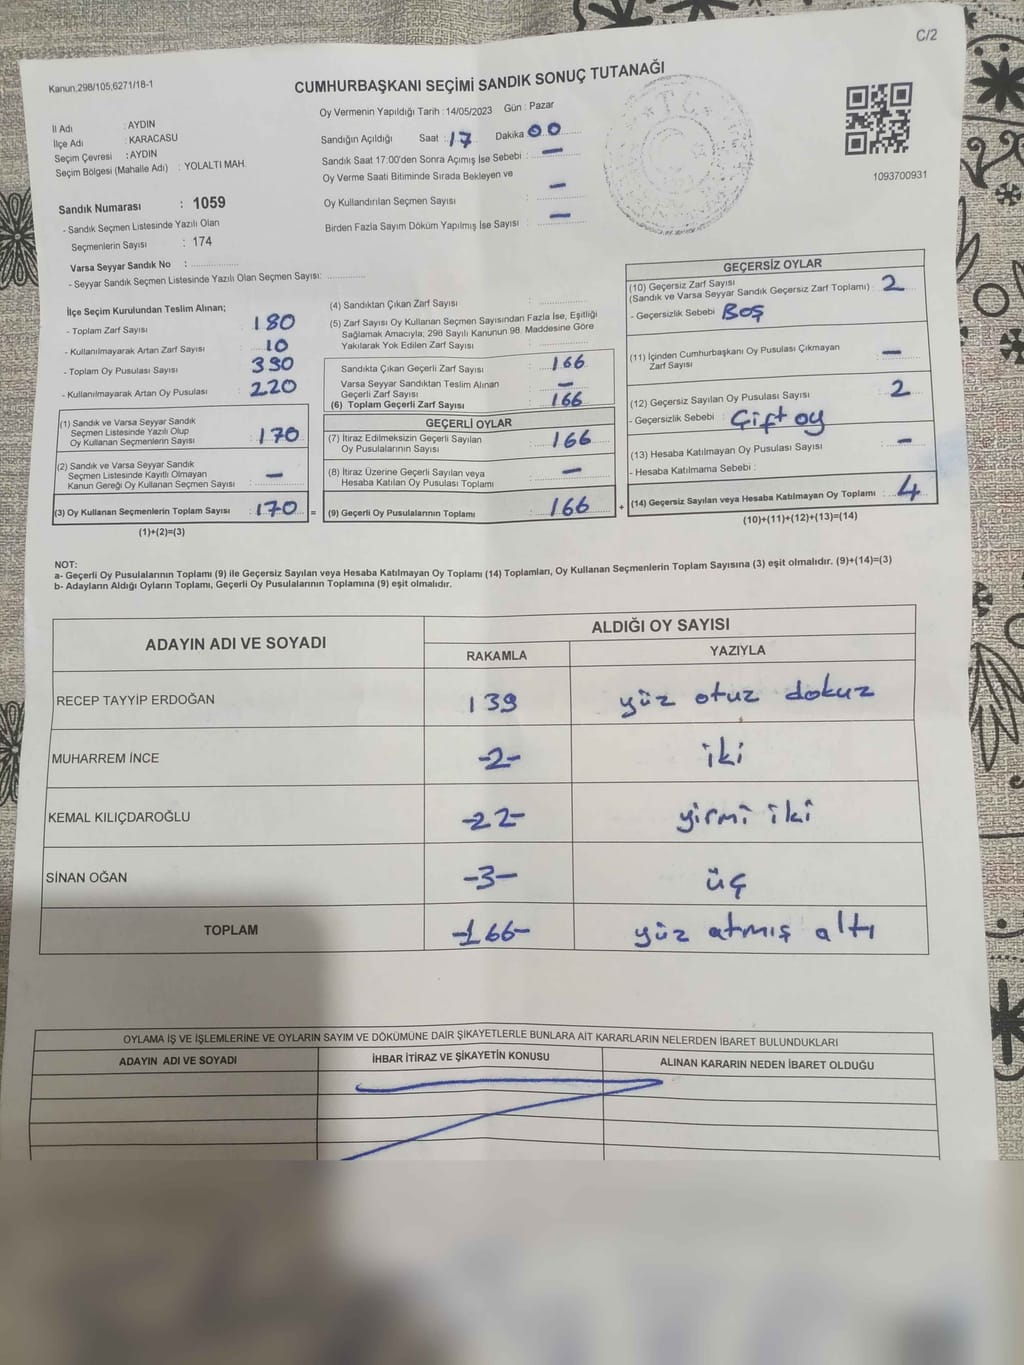 C/2
Kanun,298/105,6271/18-1
CUMHURBAŞKANI SEÇİMİ SANDIK SONUÇ TUTANAĞI
Oy Vermenin Yapıldığı Tarih : 14/05/2023 Gün : Pazar
İl Adı : AYDIN
İlçe Adı : KARACASU
Seçim Çevresi : AYDIN
Seçim Bölgesi (Mahalle Adı) : YOLALTI MAH.
Sandığın Açıldığı Saat : 17 Dakika 00
Sandık Saat 17:00'den Sonra Açımış İse Sebebi : —
Oy Verme Saati Bitiminde Sırada Bekleyen ve
Oy Kullandırılan Seçmen Sayısı : —
Birden Fazla Sayım Döküm Yapılmış İse Sayısı : —
T.C.
1093700931
Sandık Numarası : 1059
- Sandık Seçmen Listesinde Yazılı Olan
Seçmenlerin Sayısı : 174
Varsa Seyyar Sandık No :
- Seyyar Sandık Seçmen Listesinde Yazılı Olan Seçmen Sayısı:
İlçe Seçim Kurulundan Teslim Alınan;
- Toplam Zarf Sayısı 180
- Kullanılmayarak Artan Zarf Sayısı 10
- Toplam Oy Pusulası Sayısı 390
- Kullanılmayarak Artan Oy Pusulası 220
(1) Sandık ve Varsa Seyyar Sandık
Seçmen Listesinde Yazılı Olup
Oy Kullanan Seçmenlerin Sayısı : 170
(2) Sandık ve Varsa Seyyar Sandık
Seçmen Listesinde Kayıtlı Olmayan
Kanun Gereği Oy Kullanan Seçmen Sayısı : —
(3) Oy Kullanan Seçmenlerin Toplam Sayısı : 170 =
(1)+(2)=(3)
(4) Sandıktan Çıkan Zarf Sayısı :
(5) Zarf Sayısı Oy Kullanan Seçmen Sayısından Fazla İse, Eşitliği
Sağlamak Amacıyla; 298 Sayılı Kanunun 98. Maddesine Göre
Yakılarak Yok Edilen Zarf Sayısı :
Sandıkta Çıkan Geçerli Zarf Sayısı : 166
Varsa Seyyar Sandıktan Teslim Alınan
Geçerli Zarf Sayısı : —
(6) Toplam Geçerli Zarf Sayısı : 166
GEÇERLİ OYLAR
(7) İtiraz Edilmeksizin Geçerli Sayılan
Oy Pusulalarının Sayısı : 166
(8) İtiraz Üzerine Geçerli Sayılan veya
Hesaba Katılan Oy Pusulası Toplamı : —
(9) Geçerli Oy Pusulalarının Toplamı : 166 +
GEÇERSİZ OYLAR
(10) Geçersiz Zarf Sayısı
(Sandık ve Varsa Seyyar Sandık Geçersiz Zarf Toplamı) : 2
- Geçersizlik Sebebi : Boş
(11) İçinden Cumhurbaşkanı Oy Pusulası Çıkmayan
Zarf Sayısı : —
(12) Geçersiz Sayılan Oy Pusulası Sayısı : 2
- Geçersizlik Sebebi : Çift oy
(13) Hesaba Katılmayan Oy Pusulası Sayısı : —
- Hesaba Katılmama Sebebi :
(14) Geçersiz Sayılan veya Hesaba Katılmayan Oy Toplamı : 4
(10)+(11)+(12)+(13)=(14)
NOT:
a- Geçerli Oy Pusulalarının Toplamı (9) ile Geçersiz Sayılan veya Hesaba Katılmayan Oy Toplamı (14) Toplamları, Oy Kullanan Seçmenlerin Toplam Sayısına (3) eşit olmalıdır. (9)+(14)=(3)
b- Adayların Aldığı Oyların Toplamı, Geçerli Oy Pusulalarının Toplamına (9) eşit olmalıdır.
ADAYIN ADI VE SOYADI ALDIĞI OY SAYISI
RAKAMLA YAZIYLA
RECEP TAYYİP ERDOĞAN 139 yüz otuz dokuz
MUHARREM İNCE -2- iki
KEMAL KILIÇDAROĞLU -22- yirmi iki
SİNAN OĞAN -3- üç
TOPLAM -166- yüz atmış altı
OYLAMA İŞ VE İŞLEMLERİNE VE OYLARIN SAYIM VE DÖKÜMÜNE DAİR ŞİKAYETLERLE BUNLARA AİT KARARLARIN NELERDEN İBARET BULUNDUKLARI
ADAYIN ADI VE SOYADI İHBAR İTİRAZ VE ŞİKAYETİN KONUSU ALINAN KARARIN NEDEN İBARET OLDUĞU